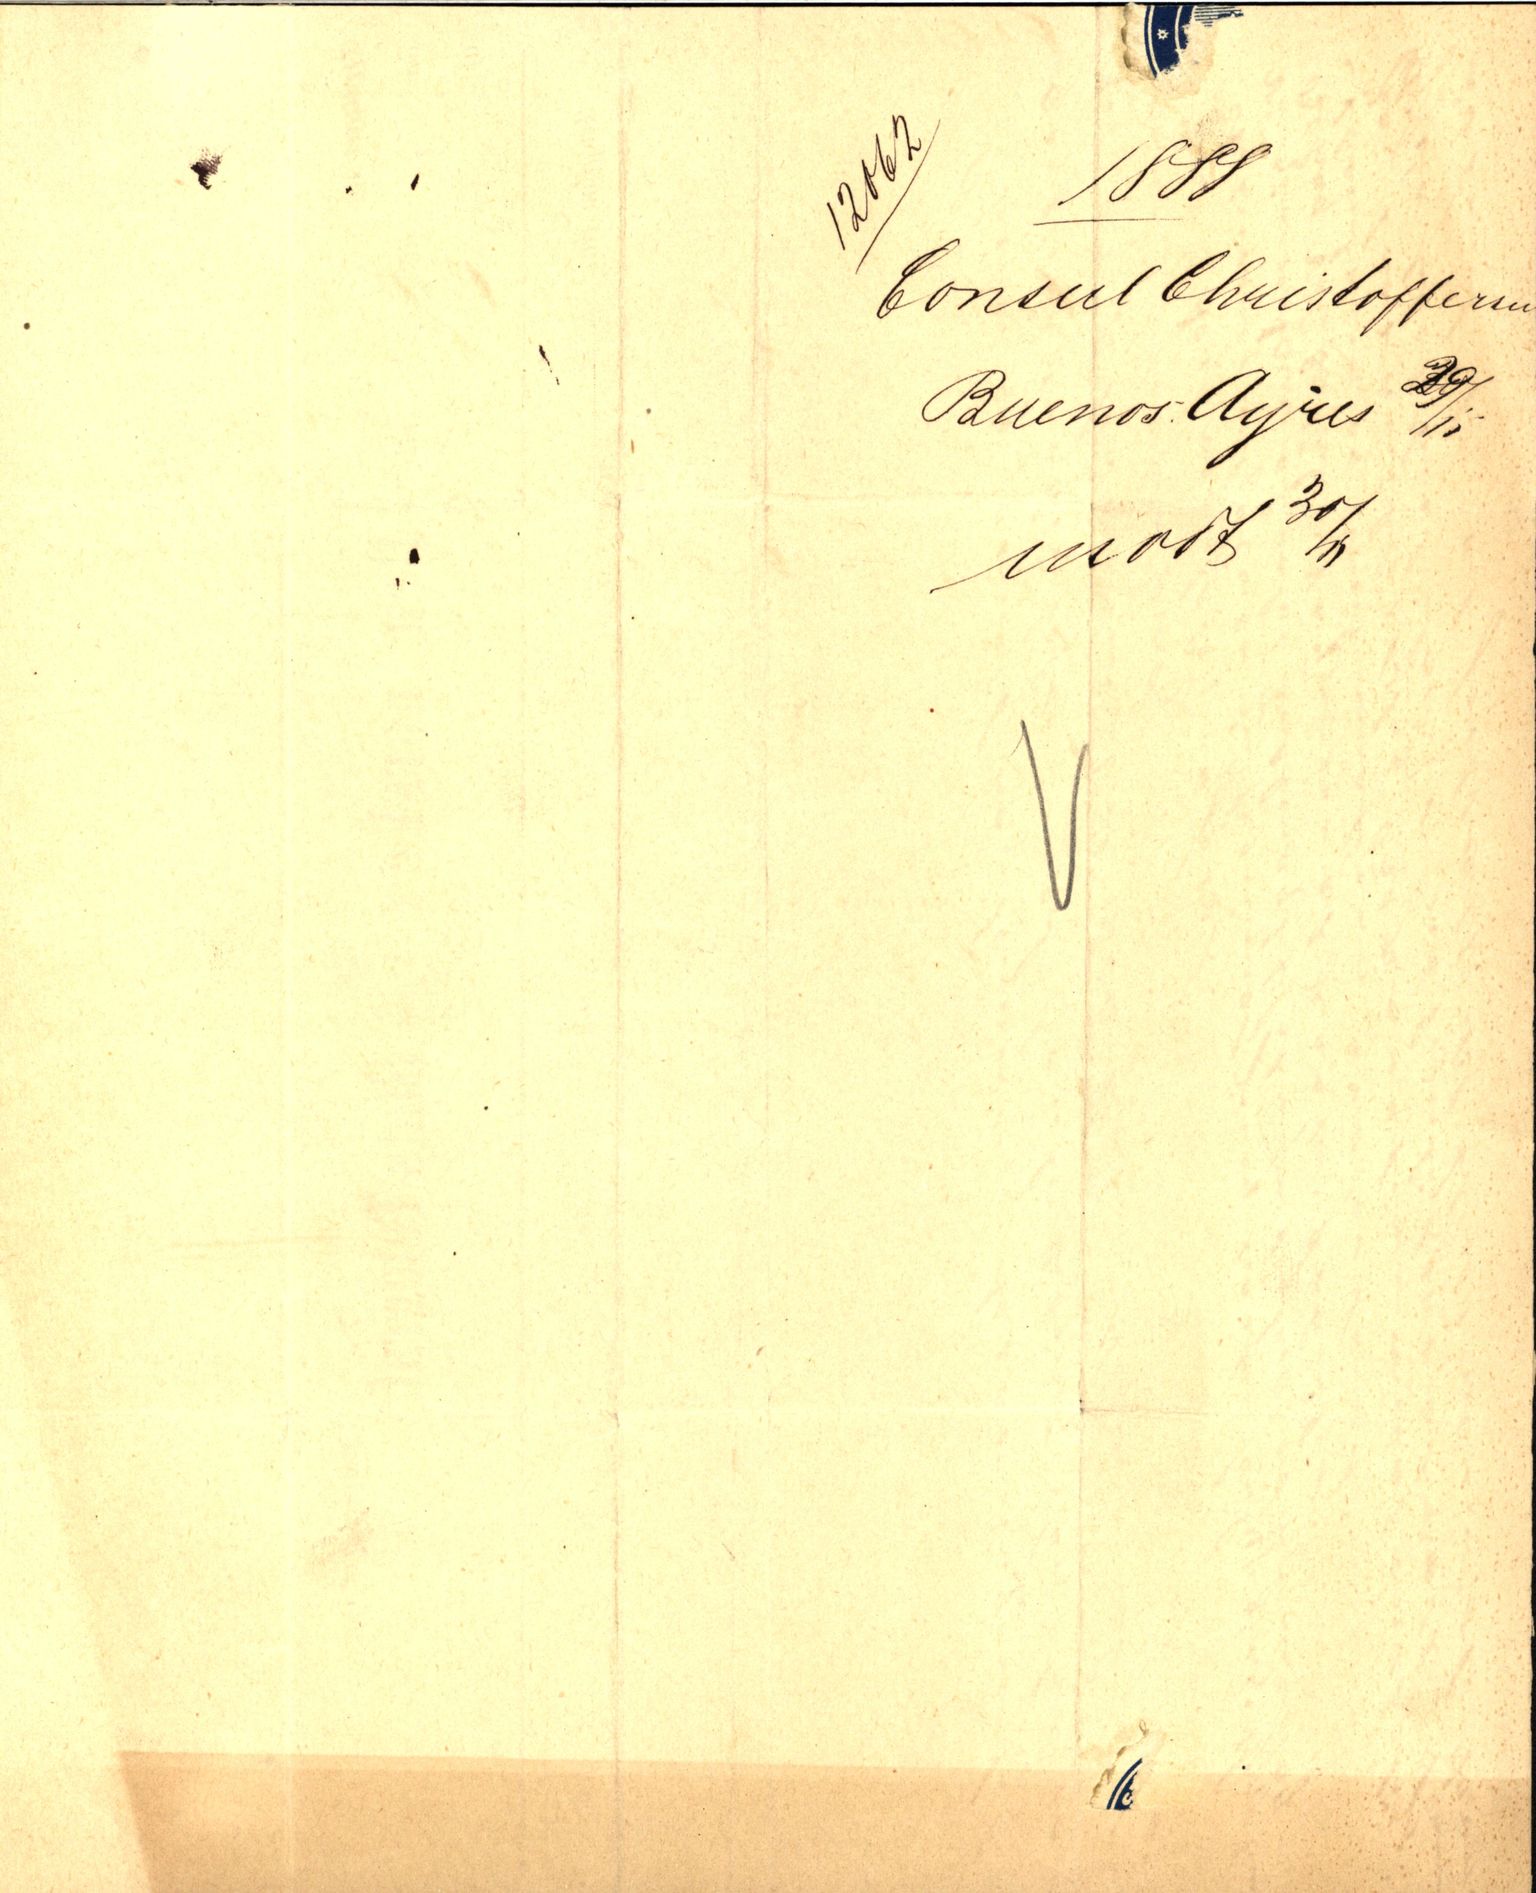 12062
1888
Consul Christoffersen
Buenos Ayres /11
modt 30/11
V